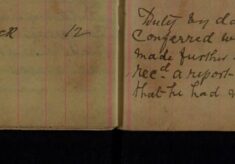 ck 12
Duty by da
Conferred w
made further
recd a report
that he had